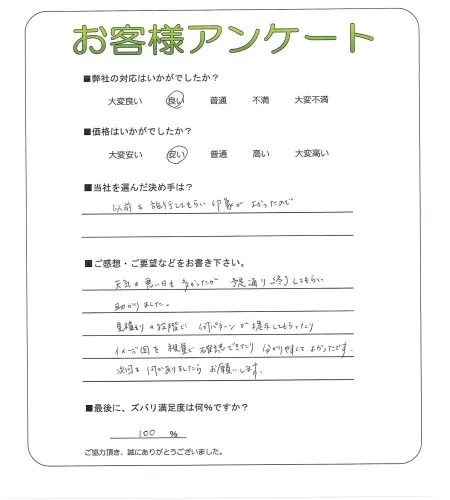 お客様アンケート
■弊社の対応はいかがでしたか?
大変良い 良い 普通 不満 大変不満
■価格はいかがでしたか?
大変安い 安い 普通 高い 大変高い
■当社を選んだ決め手は?
以前も施行してもらい 印象が よかったので
■ご感想・ご要望などをお書き下さい。
天気の悪い日も多かったが 予定通り終了してもらい
助かりました。
見積もりの段階で 何パターンか提示してもらったり
イメージ図を 視覚で確認できたり 分かりやすくてよかったです。
次回も何かありましたら お願いします。
■最後に、ズバリ満足度は何%ですか?
100 %
ご協力頂き、誠にありがとうございました。